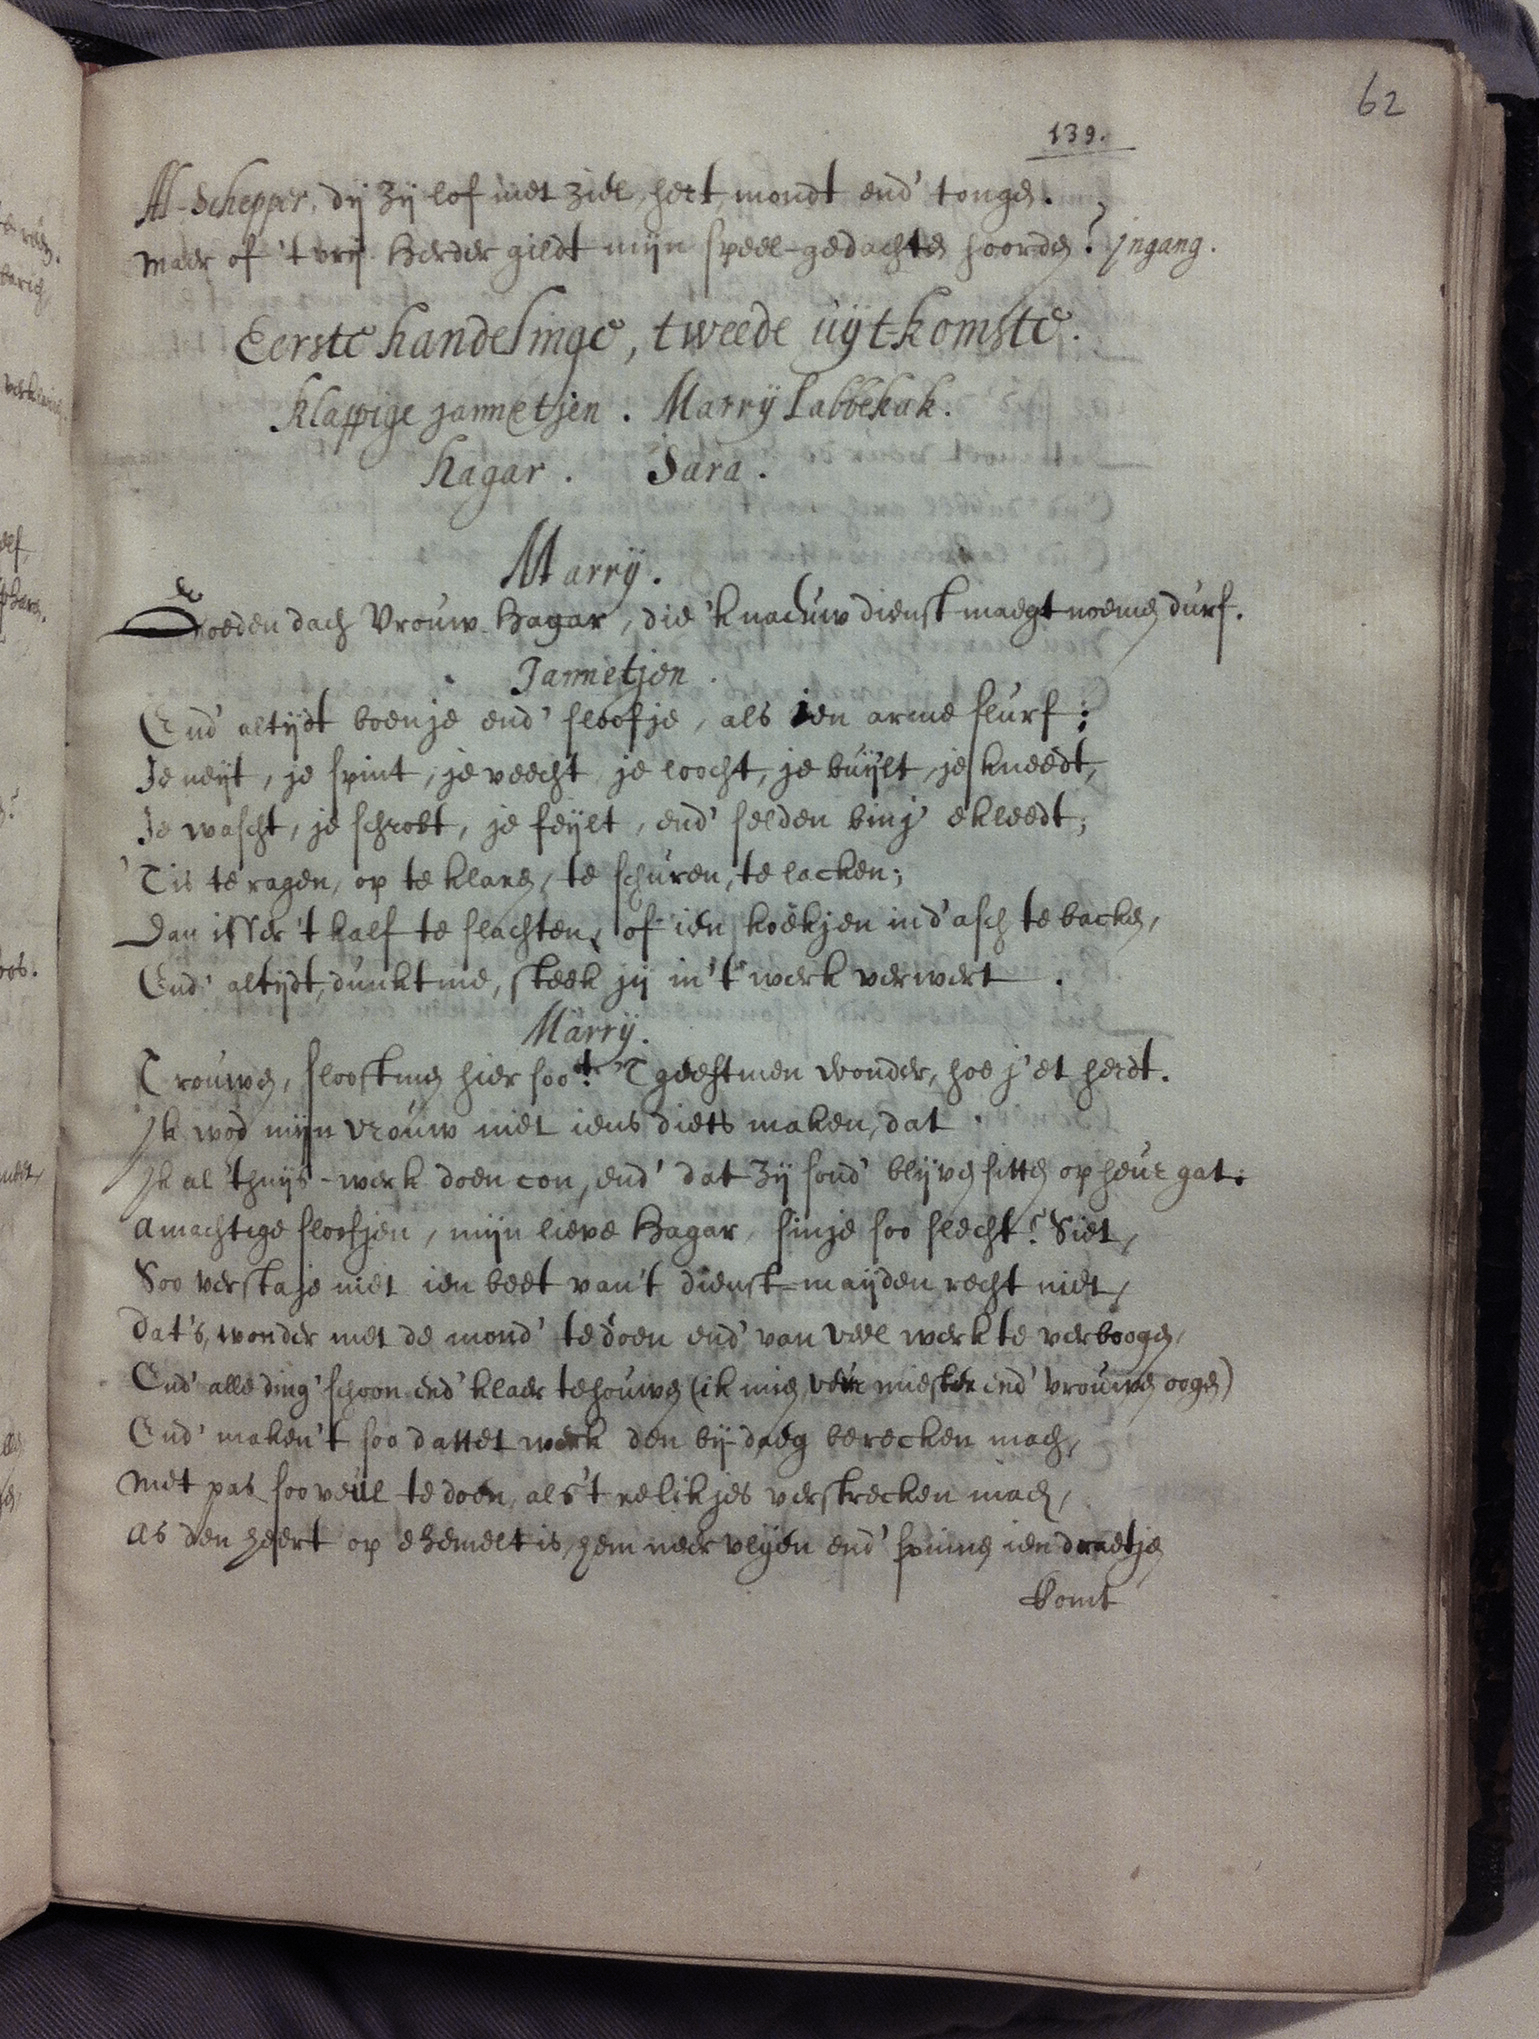 62
139.
Al-Schepper, dij zij lof met ziel, hert, mondt end' tongen.
Maer of 't vrij Herder gildt mijn speel-gedachten hoorden? Jngang.
Eerste handelinge, tweede uijt-komste.
Klappige Jannetjen. Marrij Labbekak.
Hagar. Sara.
Marrij.
Goeden dach Vrouw Hagar, die 'k nacuw dienstmaegt noemen durf.
Jannetjen.
End' altijdt boenje end' sloofje, als ien arme slurf;
Je neijt, je spint, je veecht, je loocht, je buijlt, je kneedt,
Je wascht, je schrobt, je feijlt, end' selden binj' ekleedt;
'Tis te ragen, op te klaren, te schuren, te lacken;
Dan isser 't kalf te slachten, of ien koekjen ind' asch te backen,
End' altijdt, dunkt me, steek jij in 't werk verwert.
Marrij.
Trouwen, slooftmen hier soo? 'T geeft men wonder, hoe j' et herdt.
Jk wod mijn vrouw niet iens diets maken, dat
Jk al 't huijs-werk doen con, end' dat zij sond' blijven sitten op heur gat.
Amachtige sloofjen, mijn lieve Hagar, sinje soo slecht? Siet,
Soo verstaje niet ien beet van 't dienst-maijden recht niet,
Dat's, wonder met de mond' te doen end' van veel werk te verboogen,
End' alle ding' schoon end' klaer te houwen (ik mien veur miester end' vrouwen oogen)
End' maken 't soo dattet werk den bij-daeg berecken mach,
Met pas soo veul te doen, als 't relikjes verstrecken mach,
As den heert op ehemelt is, hem neer vlijen end' spinnen ien draetjen
komt